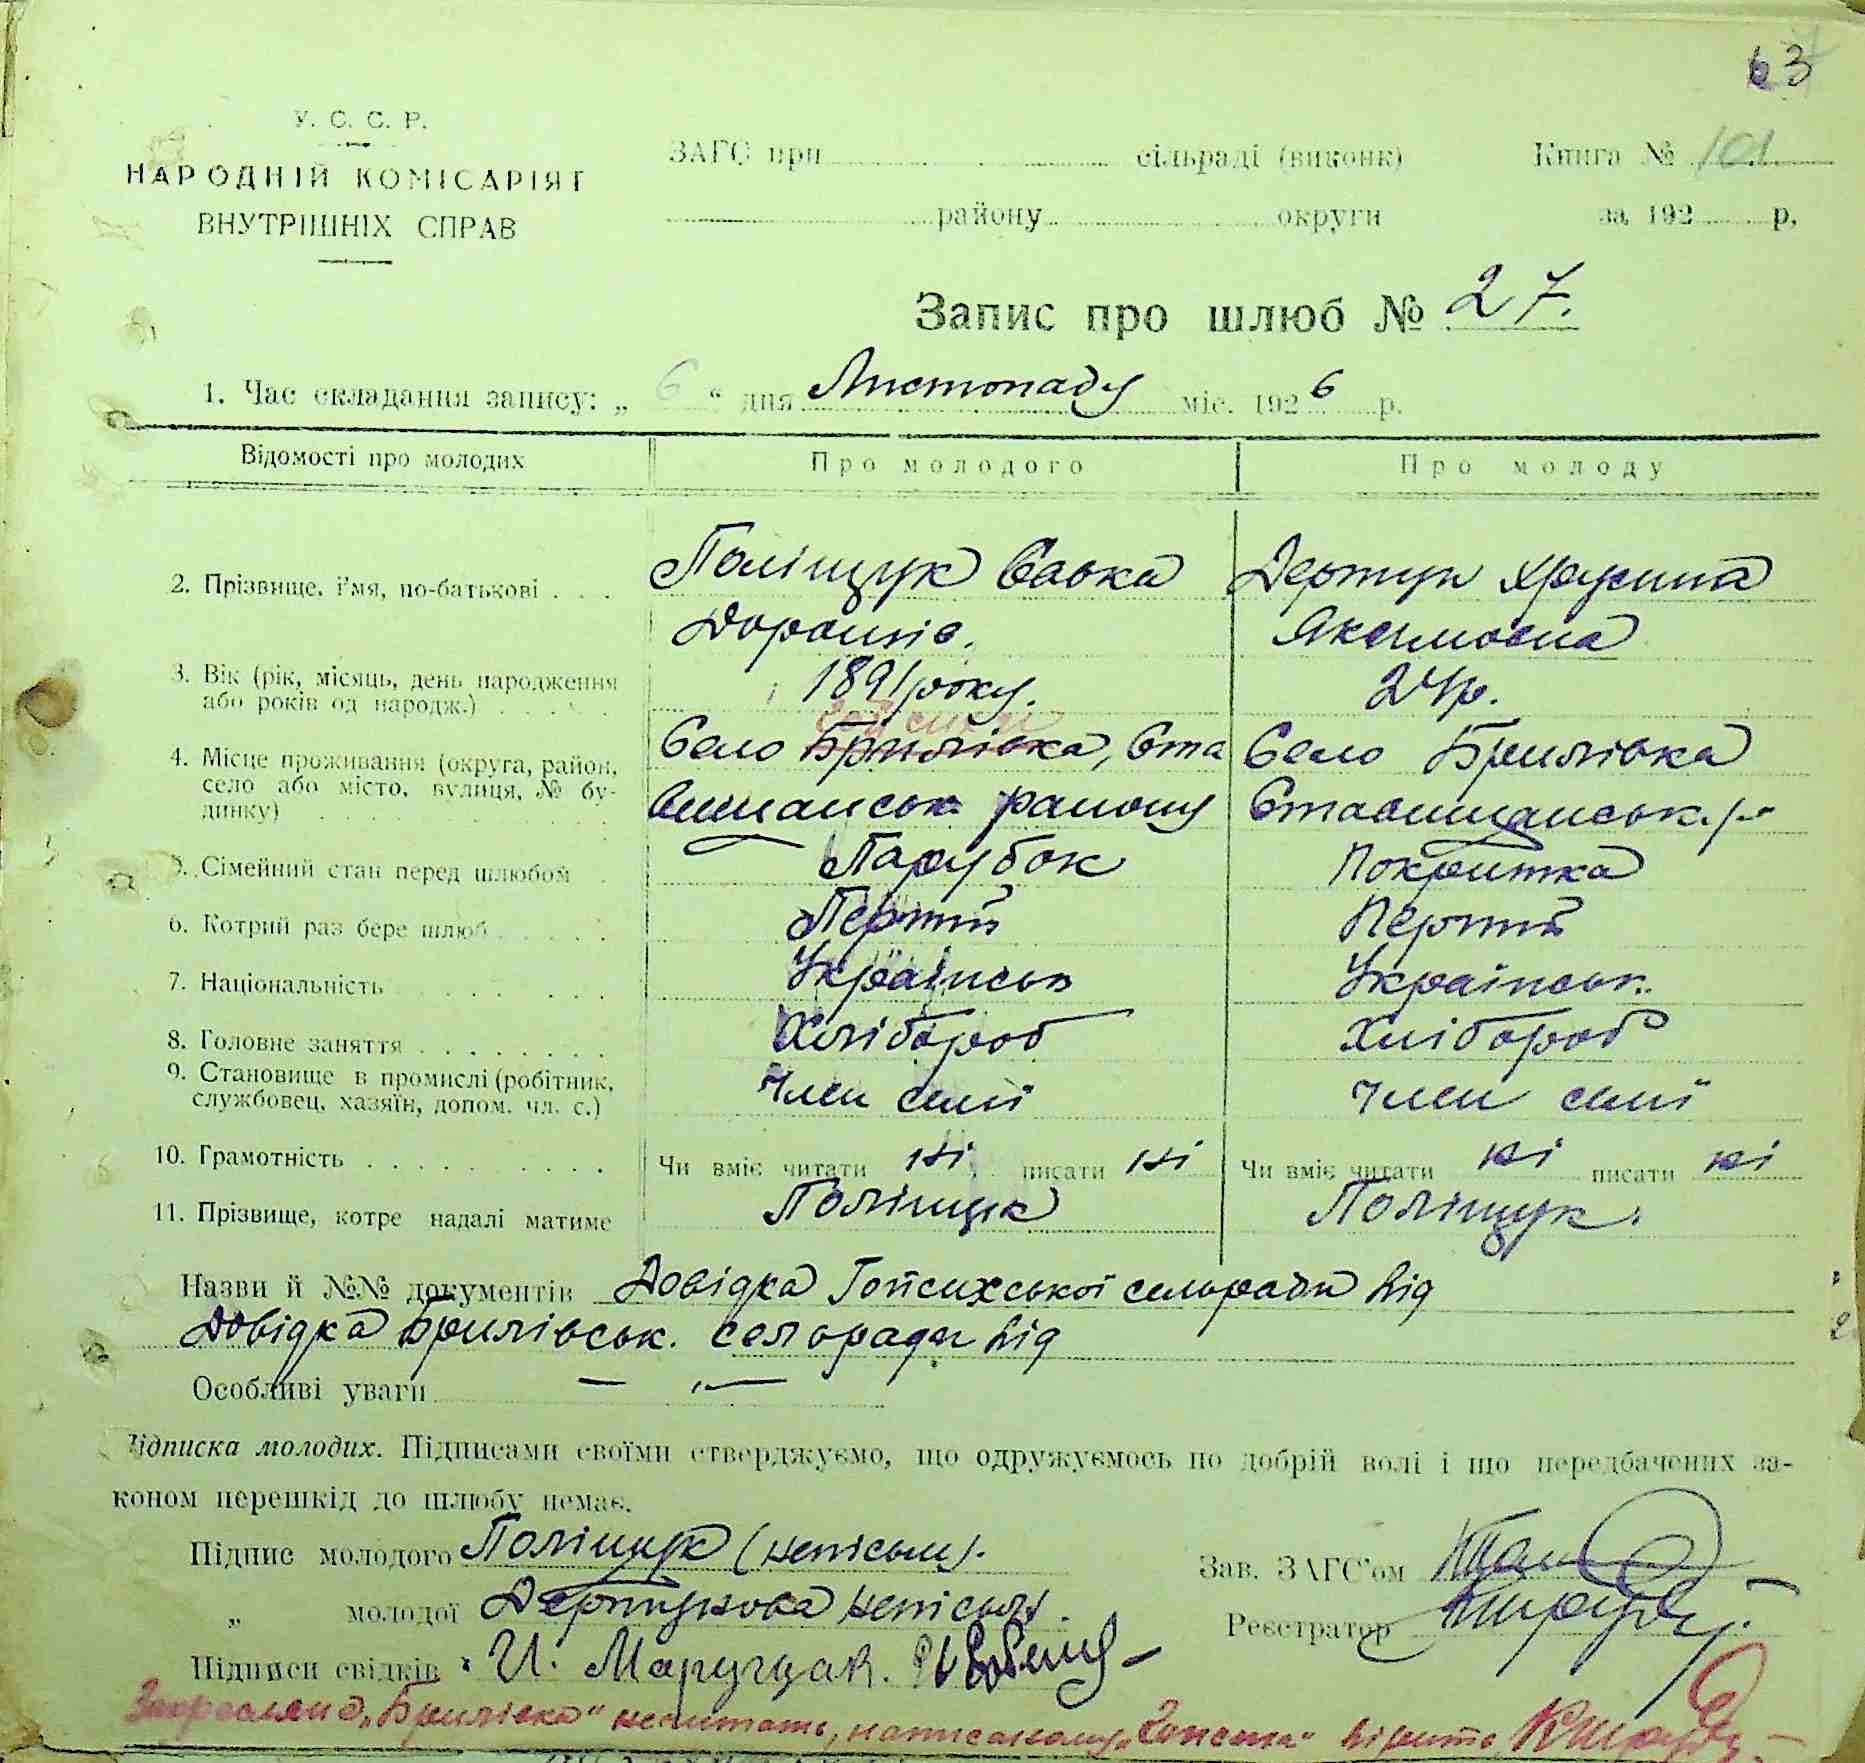 63
У. С. С. Р.
НАРОДНІЙ КОМІСАРІЯТ
ВНУТРІШНІХ СПРАВ
ЗАГС при сільраді (виконк) Книга № 101
району округи за 192 р.
Запис про шлюб № 27.
1. Час складання запису: „ 6 “ дня Листопаду міс. 1926 р.
Відомості про молодих Про молодого Про молоду
2. Прізвище, і'мя, по-батькові . . . Поліщук Савка Дертун Хрусина
Якимовна
3. Вік (рік, місяць, день народження 1891 року. 24 р.
або років од народж.)
4. Місце проживання (округа, район, Село Брилівка, Ста Село Брилівка
село або місто, вулиця, № бу- вищанськ району Ставищанськ. р-
динку)
5. Сімейний стан перед шлюбом Парубок Покритка
6. Котрий раз бере шлюб Перший Перший
7. Національність Українськ Українськ.
8. Головне заняття Хлібороб Хлібороб
9. Становище в промислі (робітник, Член семї Член семї
службовец, хазяїн, допом. чл. с.)
10. Грамотність Чи вміє читати ні писати ні Чи вміє читати ні писати ні
11. Прізвище, котре надалі матиме Поліщук Поліщук.
Назви й №№ документів Довідка сельради від
Довідка Брилівськ. селоради від
Особливі уваги — —
Підписка молодих. Підписами своїми стверджуємо, що одружуємось по добрій волі і що передбачених за-
коном перешкід до шлюбу немає.
Підпис молодого Поліщук (непісьм).
„ молодої Дертунова непісьм.
Зав. ЗАГС'ом
Реєстратор
Підписи свідків И. Марущак.
„Брилівка“ нечитать,